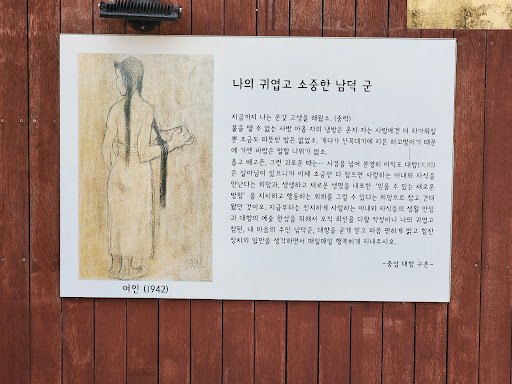 나의 귀엽고 소중한 남덕 군
지금까지 나는 온갖 고생을 해왔소. (중략)
불을 땔 수 없는 사방 아홉 자의 냉방은 혼자 자는 사람에겐 더 차가워질
뿐 조금도 따뜻한 밤은 없었소. 게다가 산꼭대기에 지은 하꼬방이기 때문
에 거센 바람은 말할 나위가 없소.
춥고 배고픈, 그런 괴로운 때는… 사경을 넘어 분명히 아직도 대향(大鄕)
은 살아남아 있으니까 이제 조금만 더 참으면 사랑하는 아내와 자식을
만난다는 희망과, 생생하고 새로운 생명을 내포한 "믿을 수 있는 새로운
방향" 을 지시하고 행동하는 회화를 그릴 수 있다는 희망으로 참고 견뎌
왔던 것이오. 지금부터는 진지하게 사랑하는 아내와 자식들의 생활 안정
과 대향의 예술 완성을 위해서 오직 최선을 다할 작정이니 나의 귀엽고
참된, 내 마음의 주인 남덕군, 대향을 굳게 믿고 마음 편하게 밝고 힘찬
장차의 일만을 생각하면서 매일매일 행복하게 지내주시오.
-중섭 대향 구촌-
여인 (1942)